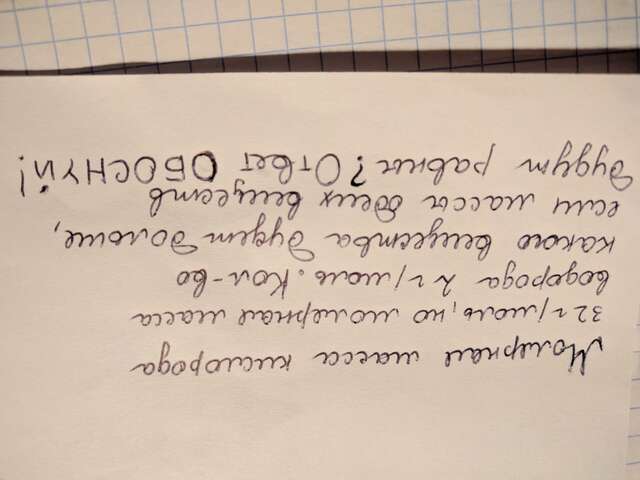 Молерная масса кислорода
32 г/моль, но молерная масса
водорода 2 г/моль. Кол-во
какого вещества будет больше,
если массы обеих веществ
будут равны? Ответ ОБОСНУЙ!